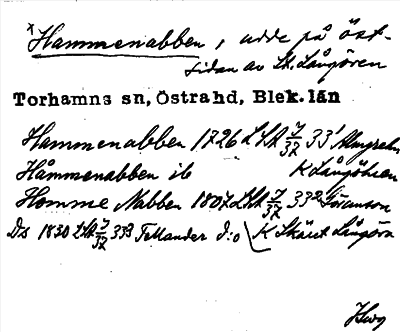 *Hammenabben, udde på öst-
sidan av St. Långören
Torhamns sn, Östrahd, Blek. län
Hammenabben 1726 LSA 7/37 33¹ Almgren
Håmmenabben ib K Långöhren
Homme Nabben 1807 LSA 7/37 33² Göranson
Ds 1830 LSA 7/37 33³ Fellander d:o K Skärt Långörn